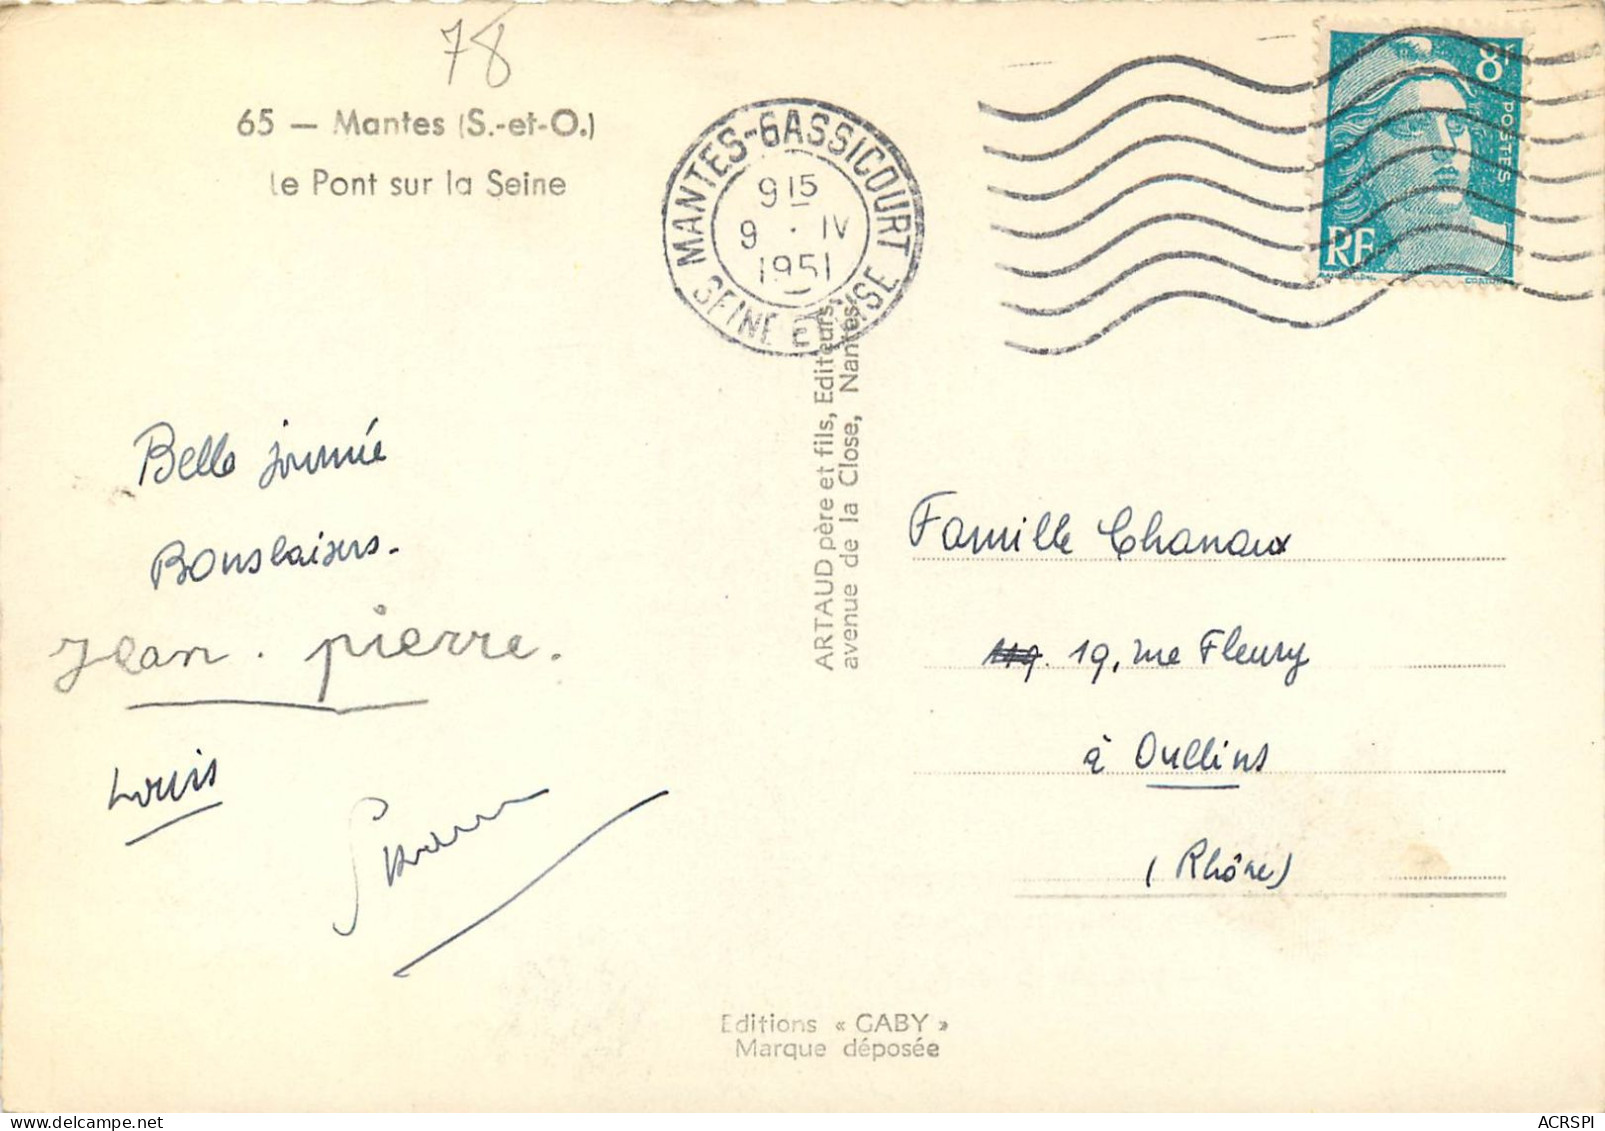 78
65 — Mantes (S.-et-O.)
Le Pont sur la Seine
MANTES-GASSICOURT
9 15
9 · IV
1951
SEINE ET OISE
8F
POSTES
RF
ARTAUD père et fils, Editeurs,
avenue de la Close, Nantes.
Belle journée
Bons baisers.
Jean. pierre.
Louis
Famille Chanaux
19, rue Fleury
à Oullins
(Rhône)
Editions « GABY »
Marque déposée
ACRSPI